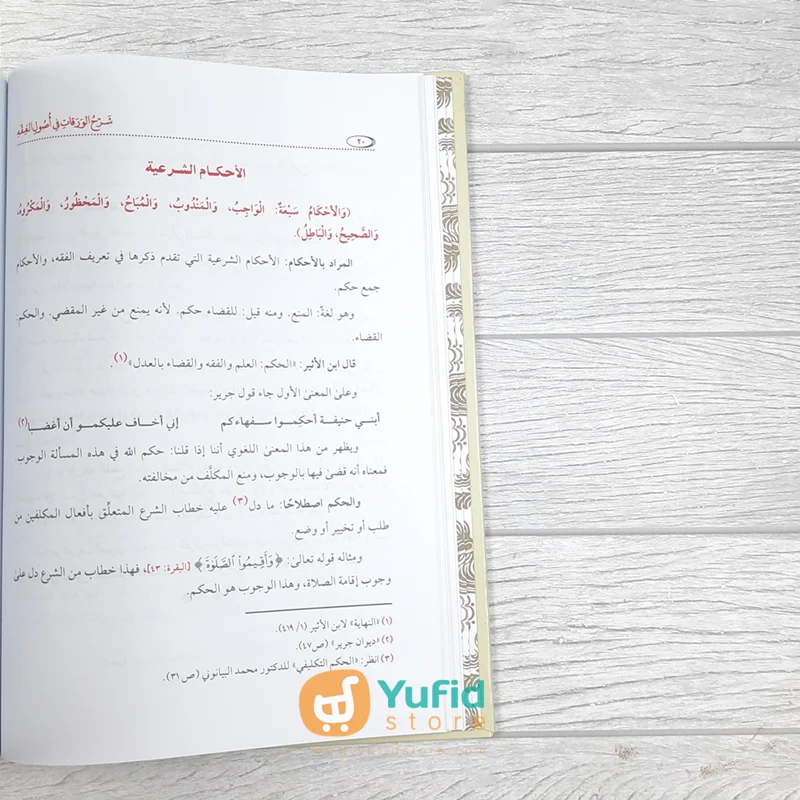 شَرْحُ الوَرَقَاتِ فِي أُصُولِ الفِقْهِ
٢٠
الأحكام الشرعية
(وَالأَحْكَامُ سَبْعَةٌ: الْوَاجِبُ، وَالْمَنْدُوبُ، وَالْمُبَاحُ، وَالْمَحْظُورُ، وَالْمَكْرُوهُ،
وَالصَّحِيحُ، وَالْبَاطِلُ).
المراد بالأحكام: الأحكام الشرعية التي تقدم ذكرها في تعريف الفقه، والأحكام
جمع حكم.
وهو لغةً: المنع. ومنه قيل: للقضاء حكم. لأنه يمنع من غير المقضي. والحكم:
القضاء.
قال ابن الأثير: «الحكم: العلم والفقه والقضاء بالعدل»(١).
وعلىٰ المعنىٰ الأول جاء قول جرير:
أبنـي حنيفة أحكِمـوا سـفهاءكم إني أخـاف عليكمـو أن أغضبـا(٢)
ويظهر من هذا المعنىٰ اللغوي أننا إذا قلنا: حكم الله في هذه المسألة الوجوب.
فمعناه أنه قضىٰ فيها بالوجوب، ومنع المكلَّف من مخالفته.
والحكم اصطلاحًا: ما دل(٣) عليه خطاب الشرع المتعلِّق بأفعال المكلفين من
طلب أو تخيير أو وضع.
ومثاله قوله تعالىٰ: ﴿وَأَقِيمُوا۟ الصَّلَوٰةَ﴾ [البقرة: ٤٣]، فهذا خطاب من الشرع دل علىٰ
وجوب إقامة الصلاة، وهذا الوجوب هو الحكم.
(١) «النهاية» لابن الأثير (١/ ٤١٩).
(٢) «ديوان جرير» (ص٤٧).
(٣) انظر: «الحكم التكليفي» للدكتور محمد البيانوني (ص ٣١).
Yufid
store
www.yufidstore.com